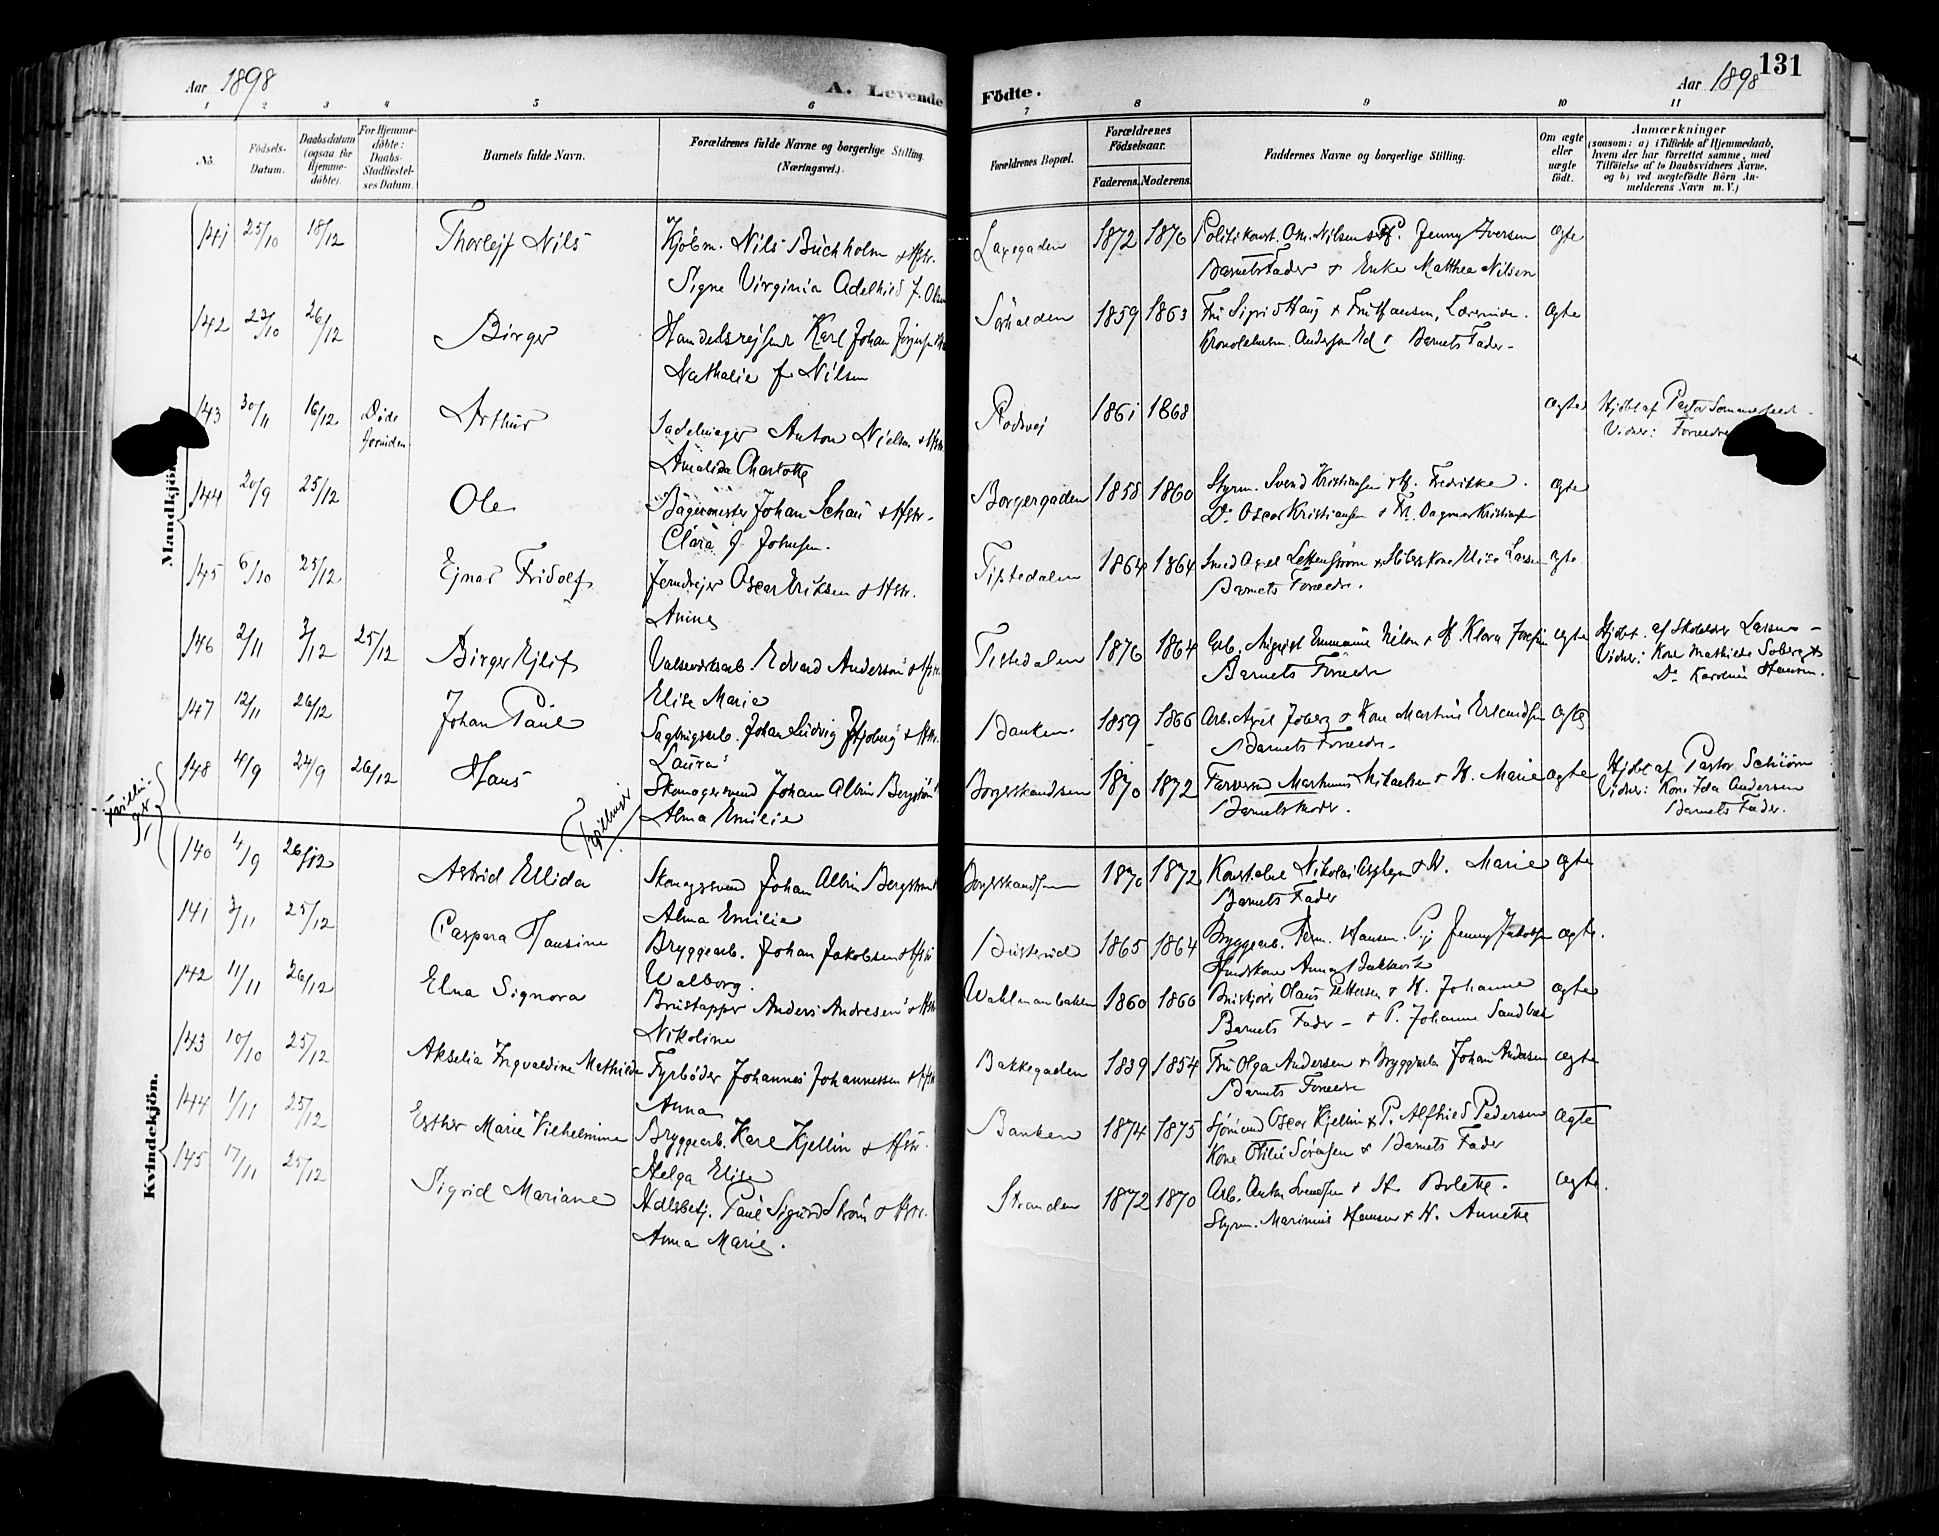 131
Aar 1898
A. Levende Födte.
Aar 1898
1 2 3 4 5 6 7 8 9 10 11
No. Födsels-Datum. Daabsdatum (ogsaa for Hjemme-döbte). For Hjemme-döbte: Daabs-Stadfæstel-ses Datum. Barnets fulde Navn. Forældrenes fulde Navne og borgerlige Stilling (Næringsvei.) Forældrenes Bopæl. Forældrenes Födselsaar. Faderens. Moderens. Faddernes Navne og borgerlige Stilling. Om ægte eller uægte født. Anmærkninger (saasom: a) i Tilfælde af Hjemmedaab, hvem der har forrettet samme, med Tilföielse af to Daabsvidners Navne, og b) ved uægtefödte Börn An-melderens Navn m. V.)
Mandkjön.
141 25/10 18/12 Thorleif Nils Kjöbm. Nils Buchholm & Hstr. 1872 1876 Jenny Iversen ægte
Signe Virginia Adelheid f. Olsen Barnets Fader & Enke Matthea Nilsen
142 23/10 26/12 Birger Handelsrejsende Karl Johan Sørhalden 1859 1863 Fru Sigrid Haug & Fru Hansen, ægte
Nathalie f. Nilsen & Barnets Fader
143 30/11 16/12 Døde forinden Arthur Sadelmager Anton Nielsen & Hstr. Rødsvej 1861 1868 ægte Hjdbt af Pastor
Amalida Charlotte Vidner: Forældre
144 20/9 25/12 Ole Bagermester Johan Schau & Hstr. Borgergaden 1858 1860 Styrm. Svend Kristiansen & H. Fredrikke. ægte
Clara J. Johnsen. Do Oscar Kristiansen & Fr. Dagmar Kristiansen
145 6/10 25/12 Ejnar Fridolf Jerndrejer Oscar Eriksen & Hstr. Tistedalen 1864 1864 Smed Axel Kone Elise Larsen ægte
Anine Barnets Forældre.
146 2/11 3/12 25/12 Birger Ejlif Valseverksarb. Edvard Anderson & Hstr. Tistedalen 1876 1864 Arb. Emmanuel Nilsen & H. Klara ægte Hjdbt. af Larsen
Elise Marie Barnets Forældre Vidner: Kone Mathilde Solberg &
Do Karoline Hansen.
147 12/11 26/12 Johan Paul Sagbrugsarb. Johan Ludvig Sjøberg & Hstr. Banken 1859 1866 Arb. Axel & Kone Martine Erlandsen ægte
Laura Barnets Forældre.
148 4/9 24/9 26/12 Hans Skomagersvend Johan Albin Bergström 1870 1872 Farversvend Marthinus Mikaelsen & H. Marie ægte Hjdbt af Pastor Schiörn
Alma Emilie Barnets Moder. Vidner: Kone Ida Andersen
Barnets Fader.
Tvillin-ger
(Tvillinger)
Kvindekjön.
140 4/9 26/12 Astrid Ellida Skomagersvend Johan Albin Bergström 1870 1872 Konstabel Nikolai & H. Marie ægte
Alma Emilie Barnets Fader
141 3/11 25/12 Caspara Hansine Bryggearb. Johan Jakobsen & Hstr. Busterud 1865 1864 Bryggearb. Hansen. Pige Jenny Jakobsen ægte.
Walborg. Anna
142 11/11 26/12 Elna Signora Brustapper Anders Andresen & Hstr. Wahlmanbakken 1860 1866 Olaus Pettersen & H. Johanne ægte
Nikoline Barnets Fader & P. Johanne Sandbæk
143 10/10 25/12 Akselia Ingvaldine Mathilde Fyrböder Johannes Johannessen & Hstr Bakkegaden 1839 1854 Fru Olga Andersen & Bryggearb. Johan Andersen ægte
Anna Barnets Forældre
144 1/11 25/12 Esther Marie Vilhelmine Bryggearb. Karl Kjellin & Hstr. Banken 1874 1875 Sjömand Oscar Kjellin & P. Alfhild Pedersen ægte
Helga Elise Kone Otilie Sörensen & Barnets Fader
145 17/11 25/12 Sigrid Mariane Hdlsbetj. Paul Sigurd Ström & Hstr. Stranden 1872 1870 Arb. Anton Svendsen & H. Bolette. ægte.
Anna Marie. Styrm. Marinius Hansen & H. Annette